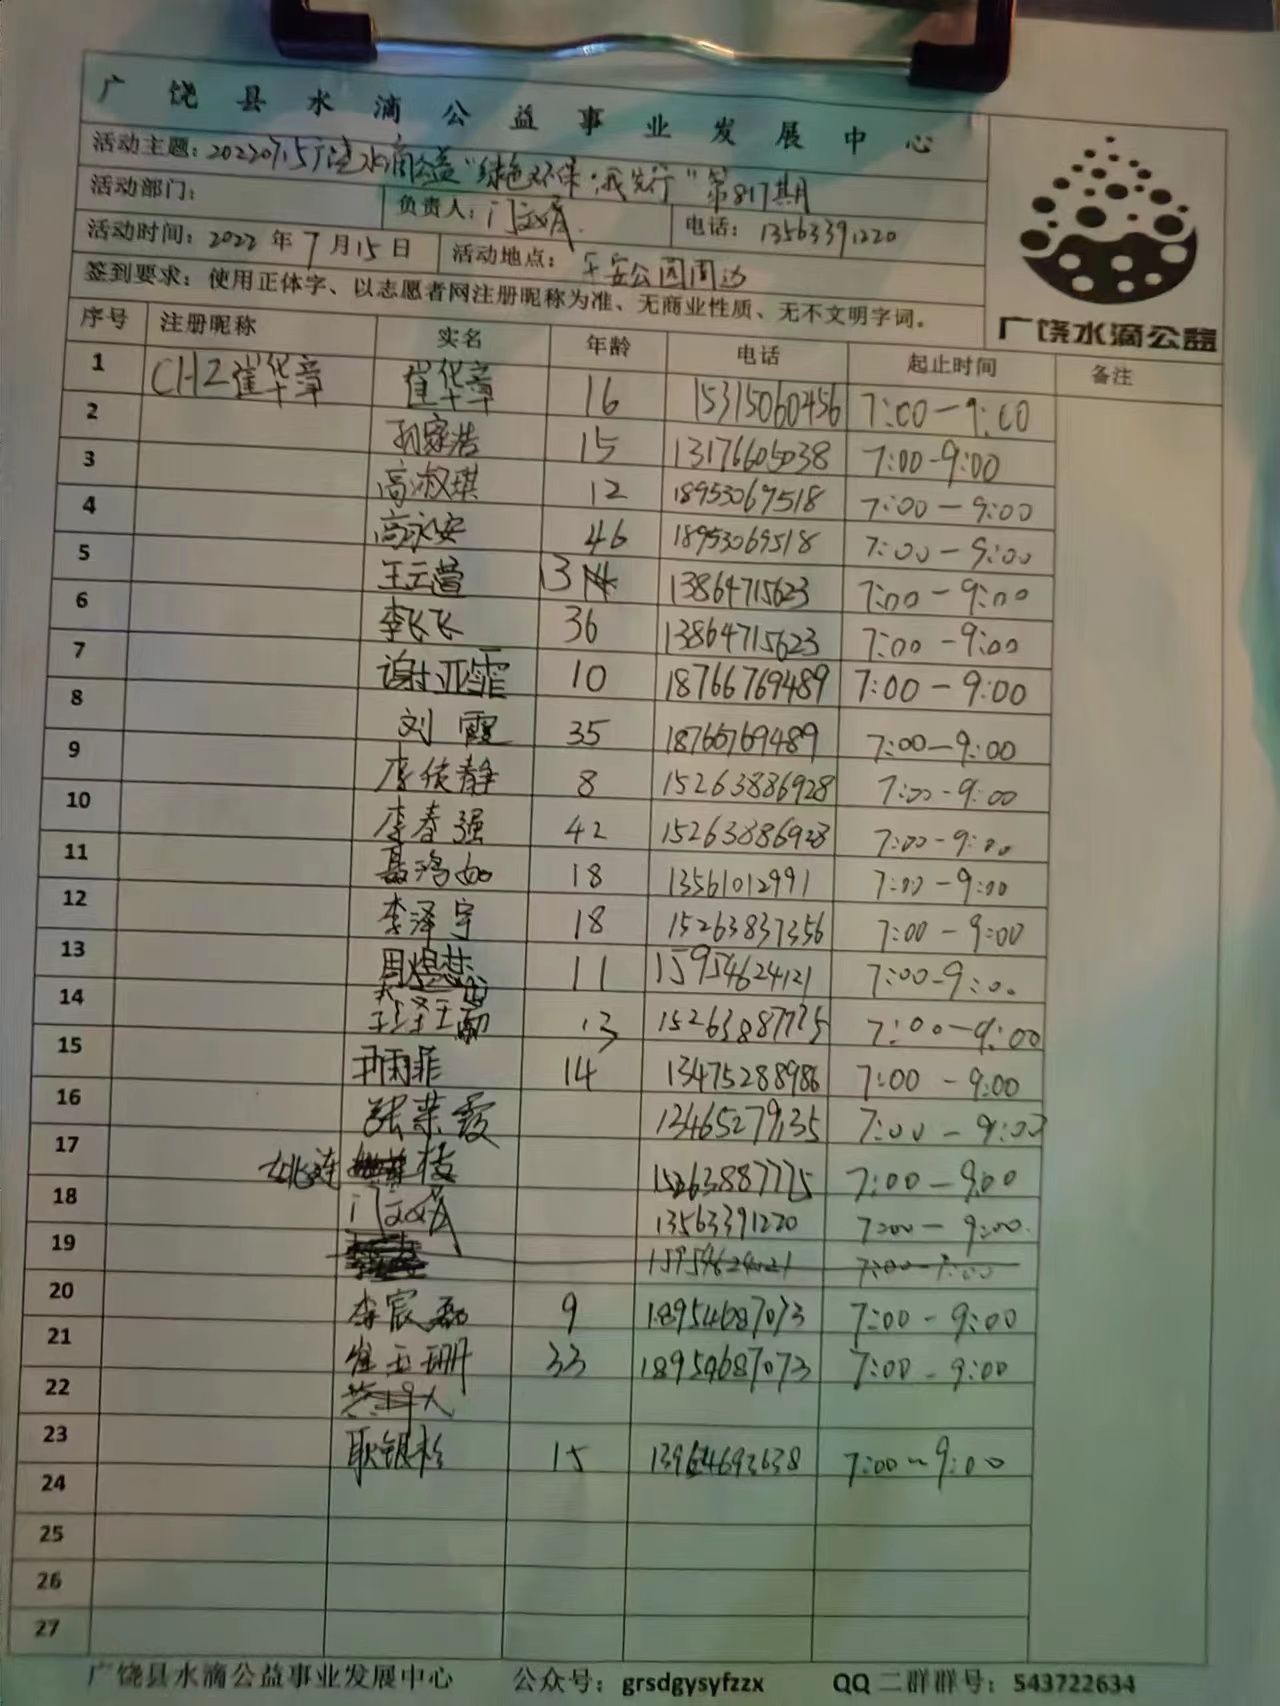 广饶县水滴公益事业发展中心
活动主题：20220715广饶水滴公益"绿色环保·我先行"第817期
活动部门： 负责人： 电话：13563391220
活动时间：2022年7月15日 活动地点：乐安公园周边
签到要求：使用正体字、以志愿者网注册昵称为准、无商业性质、无不文明字词。
广饶水滴公益
序号 注册昵称 实名 年龄 电话 起止时间 备注
1 CHZ崔华章 崔华章 16 15315060456 7:00-9:00
2 孙家浩 15 13176605038 7:00-9:00
3 高淑琪 12 18953069518 7:00-9:00
4 高永安 46 18953069518 7:00-9:00
5 王云萱 13 13864715623 7:00-9:00
6 李飞飞 36 13864715623 7:00-9:00
7 谢亚霏 10 18766769489 7:00-9:00
8 刘霞 35 18766769489 7:00-9:00
9 李俊静 8 15263886928 7:00-9:00
10 李春强 42 15263886928 7:00-9:00
11 聂鸿如 18 13561012991 7:00-9:00
12 李泽宇 18 15263837356 7:00-9:00
13 周煜梦 11 15954624121 7:00-9:00
14 13 15263887775 7:00-9:00
15 雨菲 14 13475288986 7:00-9:00
16 张荣霞 13465279135 7:00-9:00
17 姚连枝 15263887775 7:00-9:00
18 13563391220 7:00-9:00
19 15954624121 7:00-9:00
20 李宸磊 9 18954687073 7:00-9:00
21 崔玉珊 33 18954687073 7:00-9:00
22
23 耿银杉 15 13964693638 7:00-9:00
24
25
26
27
广饶县水滴公益事业发展中心 公众号：grsdgysyfzzx QQ二群群号：543722634